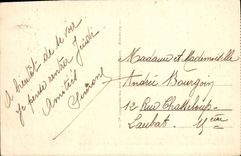 A bientôt de te voir
je pense rentrer Jeudi
Amitiés
Simone
Madame et Mademoiselle
André Bourgoin
12 Rue Chasseloup-
Laubat. 15ème